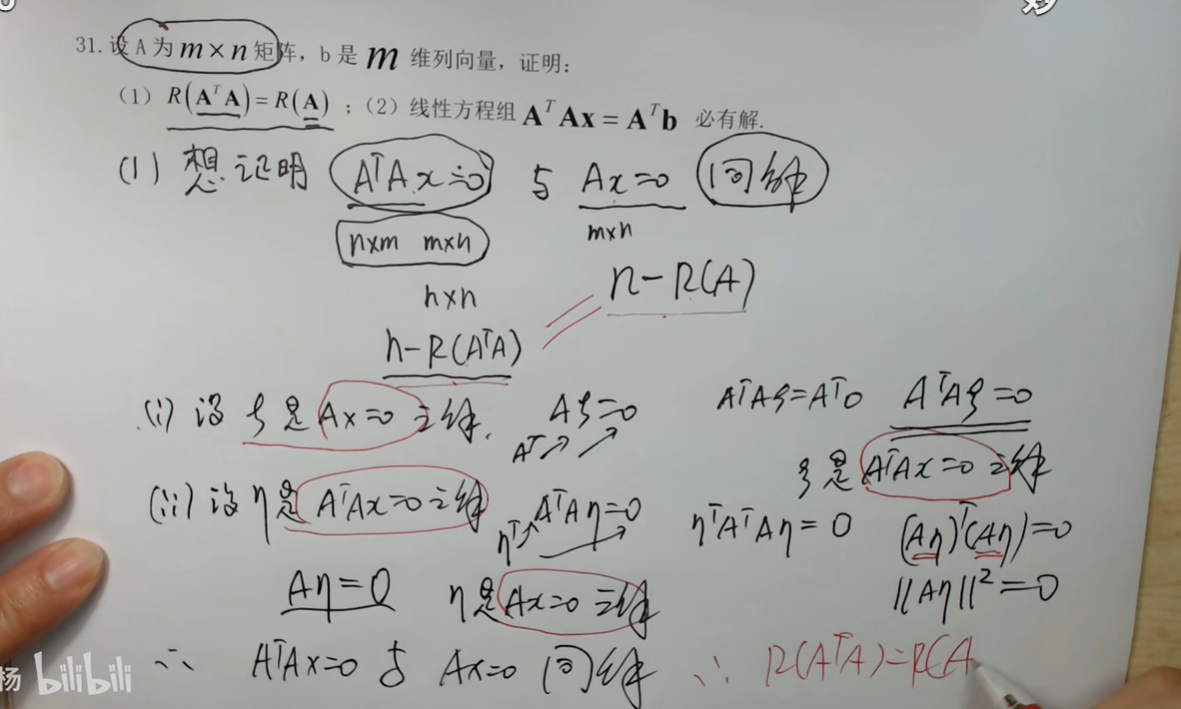 妙
31.设 A 为 m×n 矩阵，b 是 m 维列向量，证明：
（1）R(AᵀA)=R(A)；（2）线性方程组 AᵀAx=Aᵀb 必有解.
(1) 想证明 AᵀAx=0 与 Ax=0 同解
n×m m×n m×n
n×n n-R(A)
n-R(AᵀA)
(i) 设 ξ是Ax=0之解. Aξ=0 AᵀAξ=Aᵀ0 AᵀAξ=0
Aᵀ
ξ是AᵀAx=0之解
(ii) 设η是AᵀAx=0之解 AᵀAη=0 ηᵀAᵀAη=0 (Aη)ᵀ(Aη)=0
ηᵀ
Aη=0 η是Ax=0之解 ||Aη||²=0
∴ AᵀAx=0 与 Ax=0 同解 ∴ R(AᵀA)=R(A
杨 bilibili